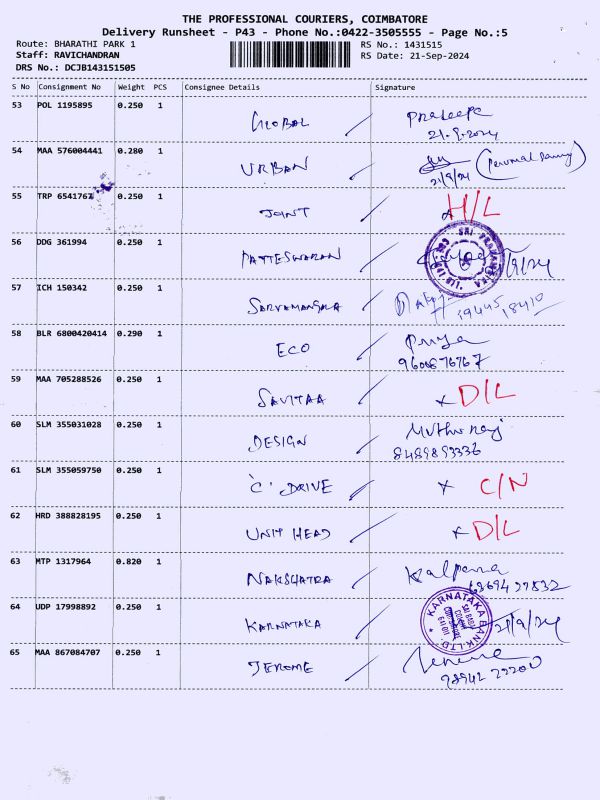 THE PROFESSIONAL COURIERS, COIMBATORE
Delivery Runsheet - P43 - Phone No.:0422-3505555 - Page No.:5
Route: BHARATHI PARK 1 RS No.: 1431515
Staff: RAVICHANDRAN RS Date: 21-Sep-2024
DRS No.: DCJB143151505
S No Consignment No Weight PCS Consignee Details Signature
53 POL 1195895 0.250 1
GLOBAL Pradeepa
21.9.2024
54 MAA 576004441 0.280 1
URBAN
21/9/24
55 TRP 6541767 0.250 1
JOINT H/L
56 DDG 361994 0.250 1
PATTESWARAN
57 ICH 150342 0.250 1
SARVAMANGALA
58 BLR 6800420414 0.290 1
ECO Priya
9600676767
59 MAA 705288526 0.250 1
SAVITAA x D/L
60 SLM 355031028 0.250 1
DESIGN Muthu Raj
8489893336
61 SLM 355059750 0.250 1
'C' DRIVE x C/N
62 HRD 388828195 0.250 1
UNIT HEAD x D/L
63 MTP 1317964 0.820 1
NAKSHATRA Kalpana
64 UDP 17998892 0.250 1
KARNATAKA KARNATAKA BANK LTD. 21/9/24
65 MAA 867084707 0.250 1
JEROME
98942 29200